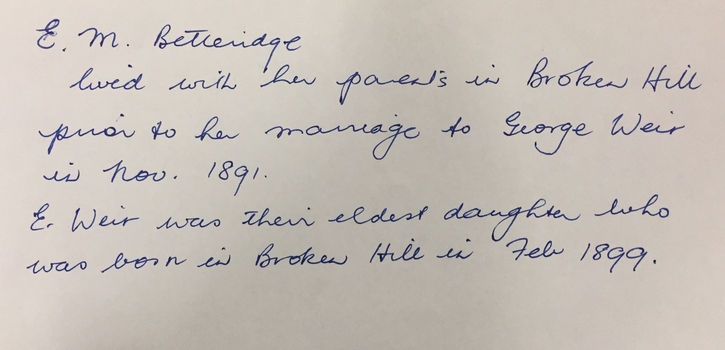 E. M. Betteridge
lived with her parents in Broken Hill
prior to her marriage to George Weir
in Nov. 1891.
E. Weir was their eldest daughter who
was born in Broken Hill in Feb 1899.